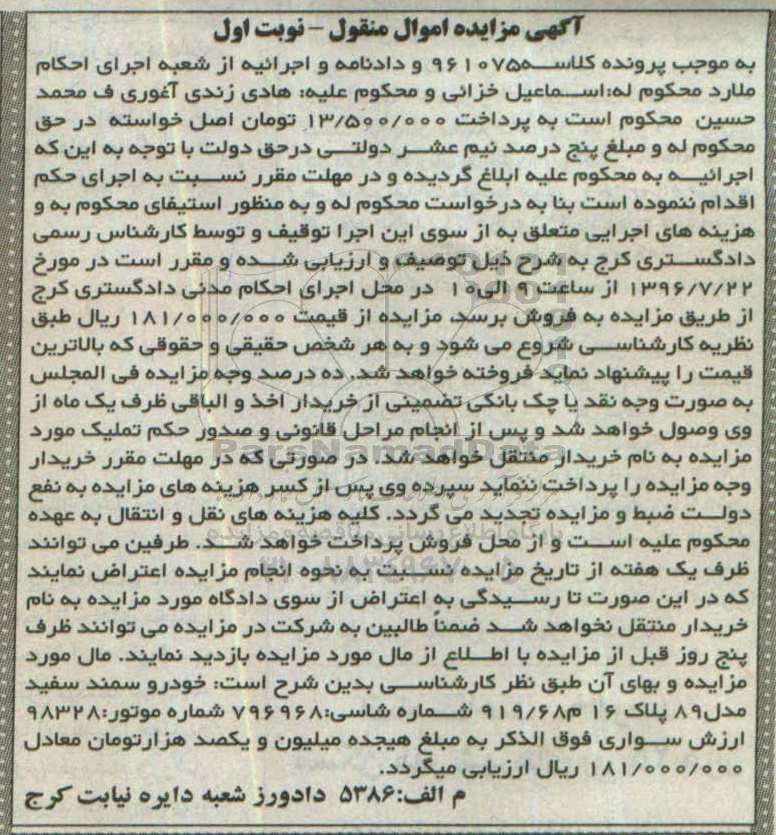 آگهی مزایده اموال منقول - نوبت اول
به موجب پرونده کلاسه۹۶۱۰۷۵ و دادنامه و اجرائیه از شعبه اجرای احکام
ملارد محکوم له:اسماعیل خزائی و محکوم علیه: هادی زندی آغوری ف محمد
حسین محکوم است به پرداخت ۱۳/۵۰۰/۰۰۰ تومان اصل خواسته در حق
محکوم له و مبلغ پنج درصد نیم عشر دولتی درحق دولت با توجه به این که
اجرائیه به محکوم علیه ابلاغ گردیده و در مهلت مقرر نسبت به اجرای حکم
اقدام ننموده است بنا به درخواست محکوم له و به منظور استیفای محکوم به و
هزینه های اجرایی متعلق به از سوی این اجرا توقیف و توسط کارشناس رسمی
دادگستری کرج به شرح ذیل توصیف و ارزیابی شده و مقرر است در مورخ
۱۳۹۶/۷/۲۲ از ساعت ۹ الی۱۰ در محل اجرای احکام مدنی دادگستری کرج
از طریق مزایده به فروش برسد، مزایده از قیمت ۱۸۱/۰۰۰/۰۰۰ ریال طبق
نظریه کارشناسی شروع می شود و به هر شخص حقیقی و حقوقی که بالاترین
قیمت را پیشنهاد نماید فروخته خواهد شد. ده درصد وجه مزایده فی المجلس
به صورت وجه نقد یا چک بانکی تضمینی از خریدار اخذ و الباقی ظرف یک ماه از
وی وصول خواهد شد و پس از انجام مراحل قانونی و صدور حکم تملیک مورد
مزایده به نام خریدار منتقل خواهد شد. در صورتی که در مهلت مقرر خریدار
وجه مزایده را پرداخت ننماید سپرده وی پس از کسر هزینه های مزایده به نفع
دولت ضبط و مزایده تجدید می گردد. کلیه هزینه های نقل و انتقال به عهده
محکوم علیه است و از محل فروش پرداخت خواهد شد. طرفین می توانند
ظرف یک هفته از تاریخ مزایده نسبت به نحوه انجام مزایده اعتراض نمایند
که در این صورت تا رسیدگی به اعتراض از سوی دادگاه مورد مزایده به نام
خریدار منتقل نخواهد شد ضمناً طالبین به شرکت در مزایده می توانند ظرف
پنج روز قبل از مزایده با اطلاع از مال مورد مزایده بازدید نمایند. مال مورد
مزایده و بهای آن طبق نظر کارشناسی بدین شرح است: خودرو سمند سفید
مدل۸۹ پلاک ۱۶ م۹۱۹/۶۸ شماره شاسی:۷۹۶۹۶۸ شماره موتور:۹۸۳۲۸
ارزش سواری فوق الذکر به مبلغ هیجده میلیون و یکصد هزارتومان معادل
۱۸۱/۰۰۰/۰۰۰ ریال ارزیابی میگردد.
م الف:۵۳۸۶ دادورز شعبه دایره نیابت کرج
ParsNamadData